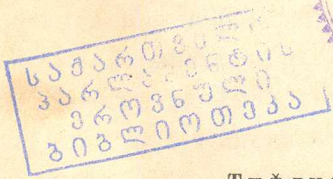 საქართველოს
პარლამენტის
ეროვნული
ბიბლიოთეკა